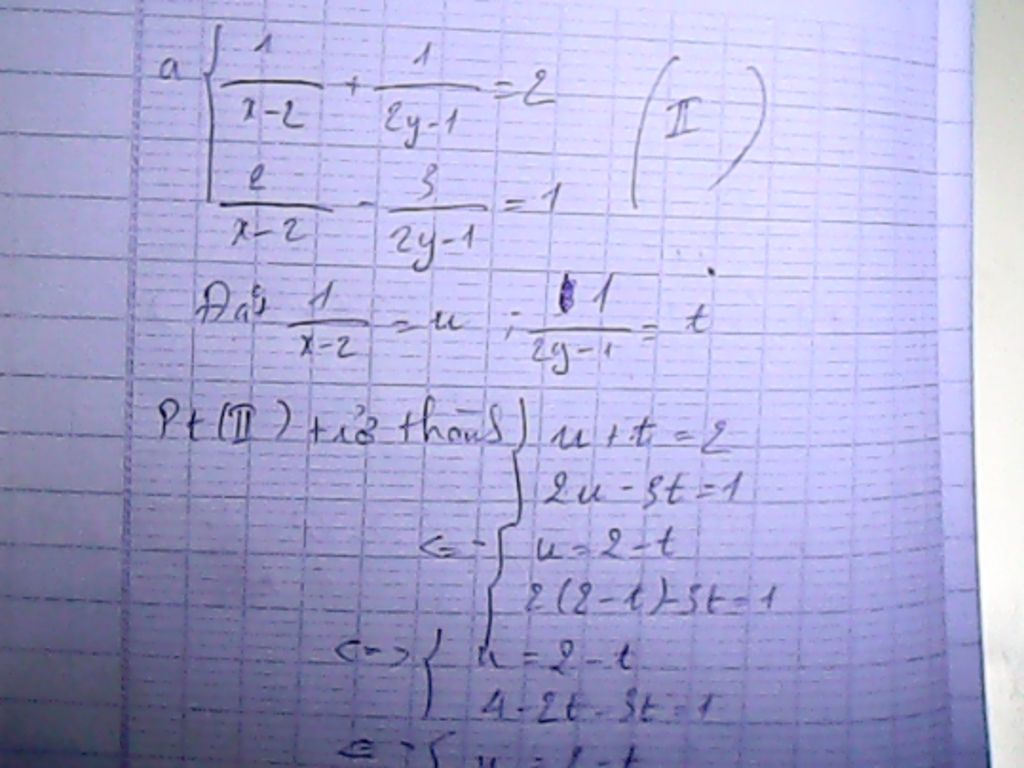 a { 1/(x-2) + 1/(2y-1) = 2 (II)
2/(x-2) - 3/(2y-1) = 1
Đặt 1/(x-2) = u ; 1/(2y-1) = t
Pt (II) trở thành { u + t = 2
2u - 3t = 1
<=> { u = 2 - t
2(2-t)-3t=1
<=> { u = 2 - t
4-2t-3t=1
<=> { u = 2-t